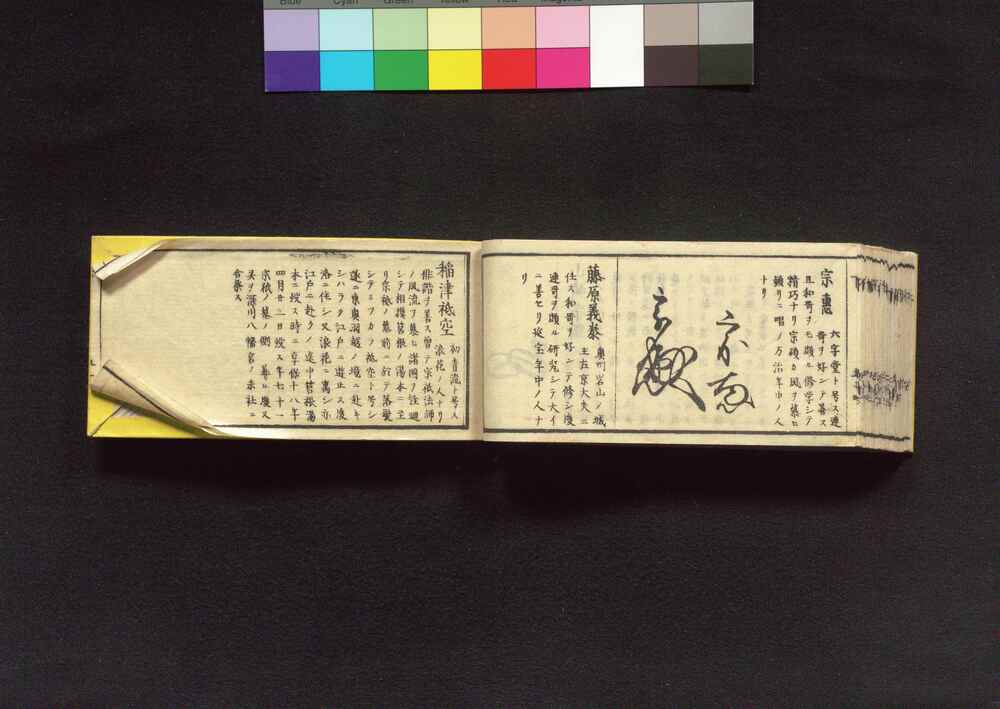 Blue Cyan Green Yellow Red Magenta
宗惠 六字堂ト号ス連
哥ヲ好ンテ善ス
且和哥ヲモ頗ル修学シテ
精巧ナリ宗頗カ風ヲ慕ヒ
頻リニ唱ノ万治年中ノ人
ナリ
藤原義泰 奥州岩山ノ城
主左京大夫ニ
仕ス和哥ヲ好ンテ修シ後
連哥ヲ頗ル研究シテ大イ
ニ善セリ延宝年中ノ人ナ
リ
稲津祗空 初青流ト号ス
浪花ノ人ナリ
俳諧ヲ善ス曽テ宗祇法師
ノ風流ヲ慕ヒ諸国ヲ詮廻
シテ相摸筥根ノ湯本ニ至
リ宗祗ノ墓前ニ於テ落髪
シテミツカラ祗空ト号シ
遂ニ東奥羽越ノ境ニ赴キ
シハラク江戸ニ遊止ス後
洛ニ住シ又浪花ニ寓シ亦
江戸ニ赴クノ途中筥根湯
本ニ歿ス時ニ享保十八年
四月廿三日ノ歿ス年七十一
宗祇ノ墓ノ側ニ葬ヒ後又
其ヲ深川八幡宮ノ赤社ニ
合祭ス